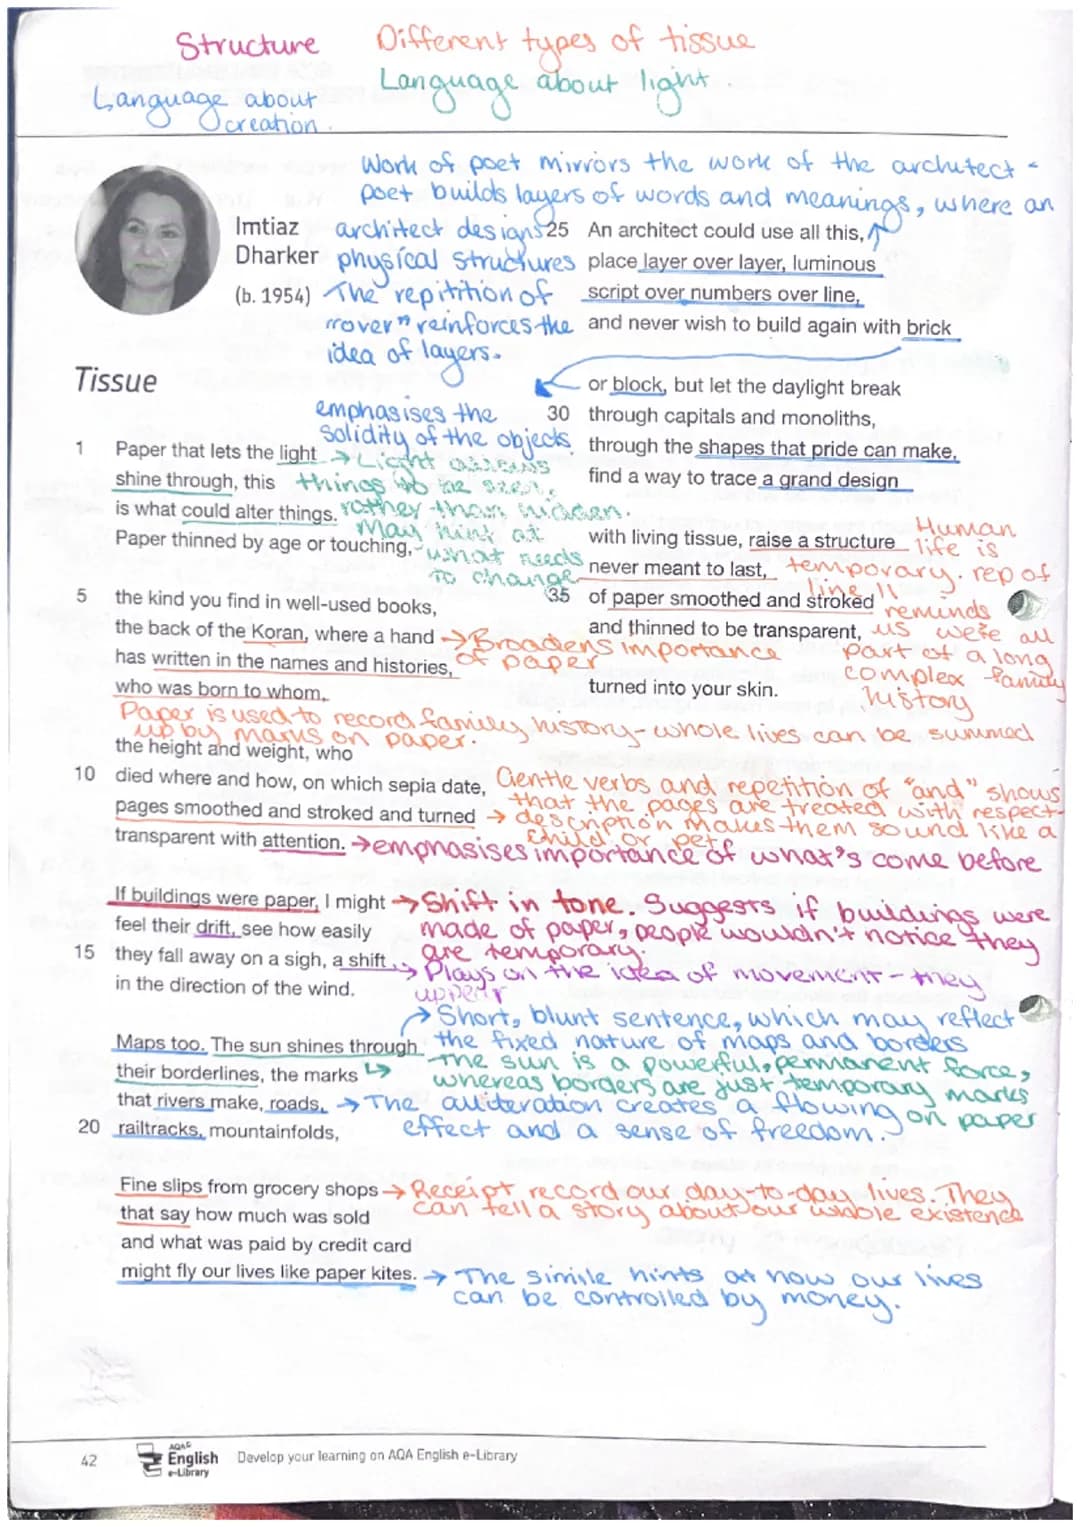 Structure
Different types of tissue
Language about light.
Language about
creation.
Work of poet mirrors the work of the architect -
poet builds layers of words and meanings, where an
architect designs
physical structures
The repitition of
"over" reinforces the
idea of layers.
Imtiaz
Dharker
(b. 1954)
Tissue
1 Paper that lets the light
shine through, this
is what could alter things.
Paper thinned by age or touching,
→ Light allows
things to be seen,
rather than hidden.
May hint at
what needs
to change
5 the kind you find in well-used books,
the back of the Koran, where a hand
has written in the names and histories,
who was born to whom,
→ Broadens importance
of paper
Paper is used to record family history - whole lives can be summed
up by marks on paper.
the height and weight, who
10 died where and how, on which sepia date,
pages smoothed and stroked and turned
transparent with attention.
Gentle verbs and repetition of "and" shows
that the pages are treated with respect -
→ description makes them sound like a
child or pet
→ emphasises importance of what's come before
If buildings were paper, I might
feel their drift, see how easily
15 they fall away on a sigh, a shift
in the direction of the wind.
→ Shift in tone. Suggests if buildings were
made of paper, people wouldn't notice they
are temporary.
→ Plays on the idea of movement - they
appear
Maps too. The sun shines through
their borderlines, the marks
that rivers make, roads,
20 railtracks, mountainfolds,
→ Short, blunt sentence, which may reflect
the fixed nature of maps and borders
The sun is a powerful, permanent force,
whereas borders are just temporary marks
on paper
→ The alliteration creates a flowing
effect and a sense of freedom.
Fine slips from grocery shops
that say how much was sold
and what was paid by credit card
might fly our lives like paper kites.
→ Receipt record our day-to-day lives. They
can tell a story about our whole existence
→ The simile hints at how our lives
can be controlled by money.
25 An architect could use all this,
place layer over layer, luminous
script over numbers over line,
and never wish to build again with brick
emphasises the
solidity of the objects
or block, but let the daylight break
30 through capitals and monoliths,
through the shapes that pride can make,
find a way to trace a grand design
with living tissue, raise a structure
never meant to last,
35 of paper smoothed and stroked
and thinned to be transparent,
turned into your skin.
Human
life is
temporary. rep of
line 11
reminds
us we're all
part of a long
complex family
history
42 AQA English e-Library Develop your learning on AQA English e-Library